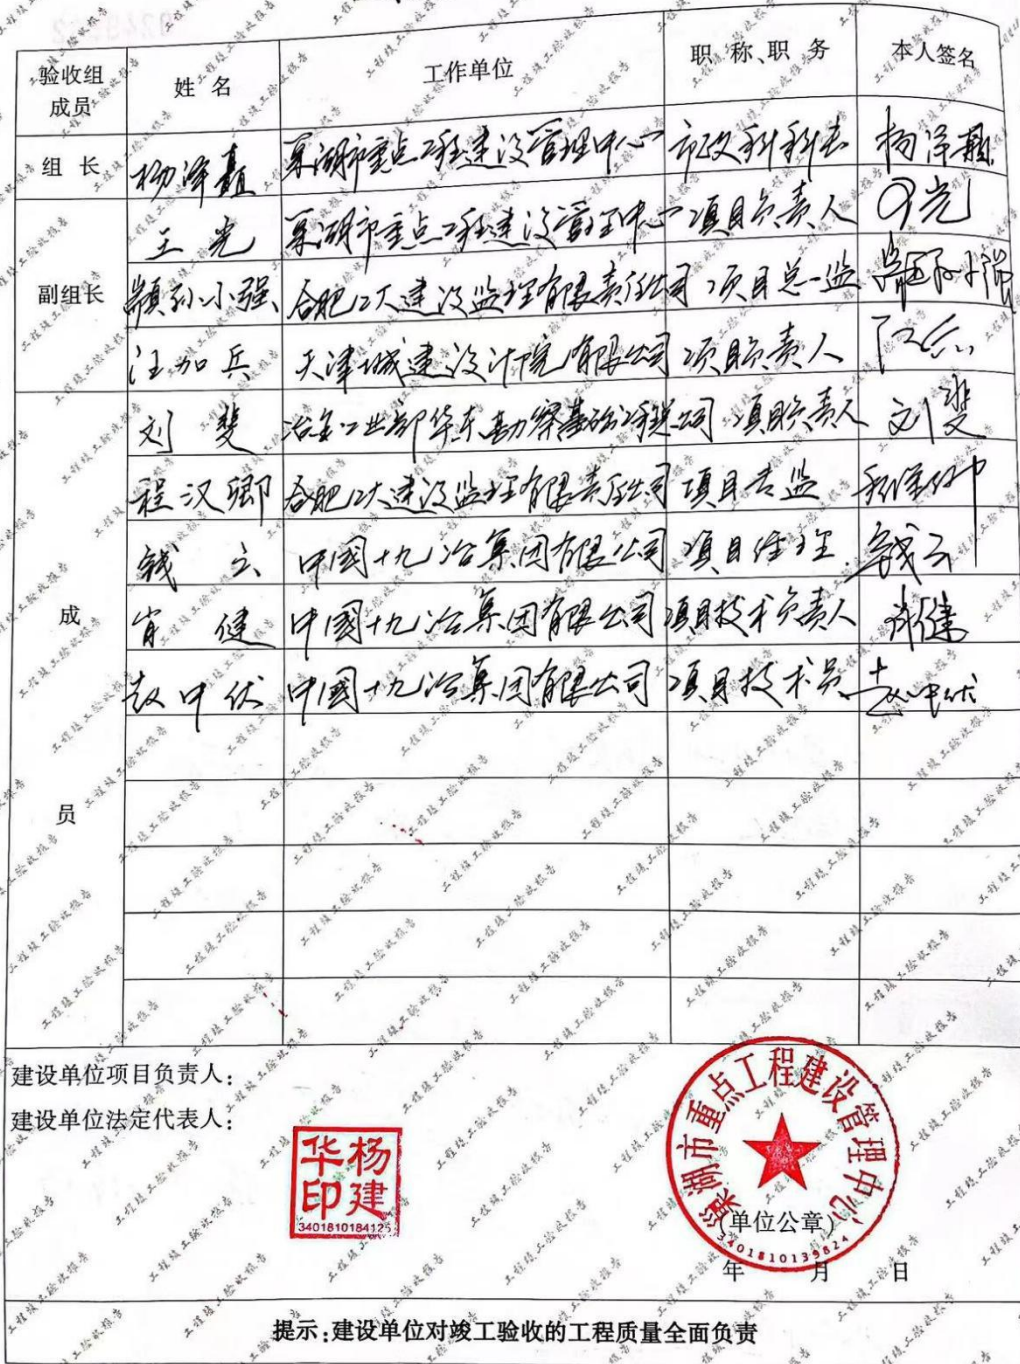 验收组成员 姓 名 工作单位 职 称、职 务 本人签名
组 长 杨泽矗 巢湖市重点工程建设管理中心 市政科科长
副组长 王光 巢湖市重点工程建设管理中心 项目负责人
颛孙小强 合肥工大建设监理有限责任公司 项目总监 颛孙小强
汪加兵 天津城建设计院有限公司 项目负责人
成 员 刘斐 冶金工业部华东勘察基础工程总公司 项目负责人 刘斐
程汉卿 合肥工大建设监理有限责任公司 项目专监
钱云 中國十九冶集团有限公司 项目经理 钱云
肖健 中國十九冶集团有限公司 项目技术负责人 肖健
赵中伏 中國十九冶集团有限公司 项目技术员 赵中伏
建设单位项目负责人：
建设单位法定代表人：
杨建华印
3401810184125
巢湖市重点工程建设管理中心
(单位公章)
3401810139824
年 月 日
提示：建设单位对竣工验收的工程质量全面负责
工程竣工验收报告